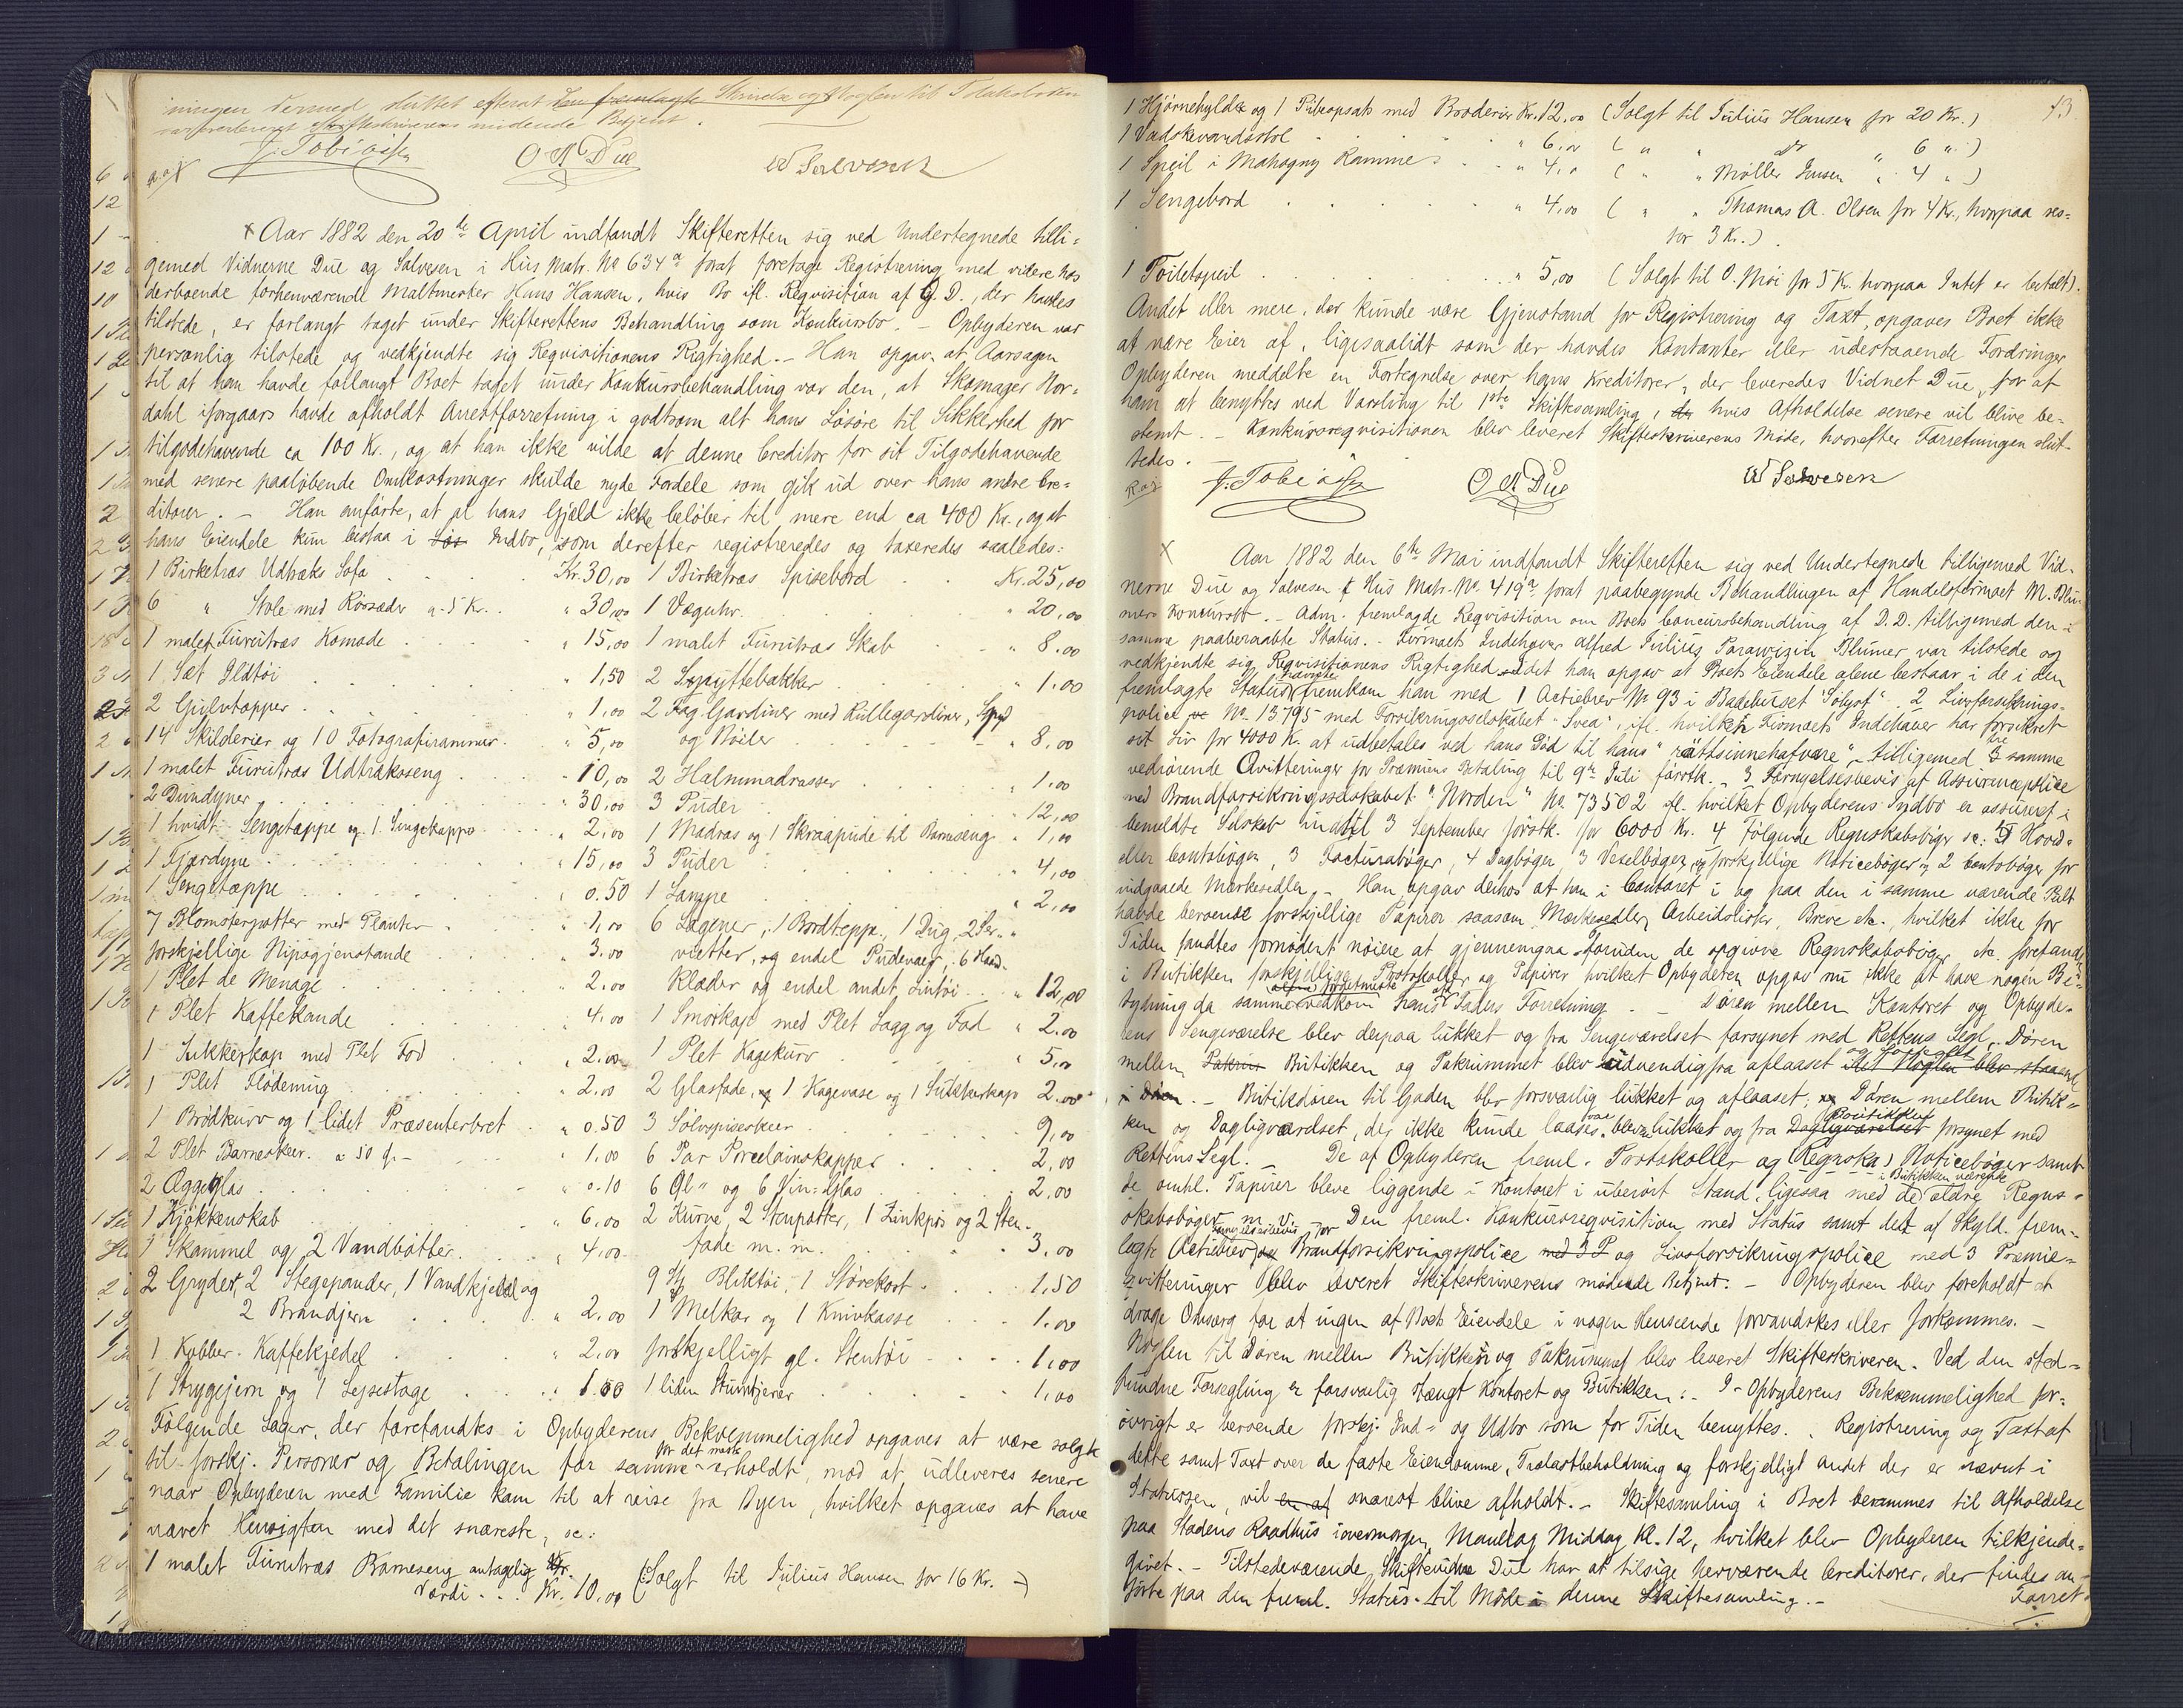 ningen dermed sluttet efterat den fremlagte Skrivelse og Nøglen til
var overleveret Skifteskriverens mødende Betjent.
J. Tobiassen O N Due W Salvesen
Aar 1882 den 20de April indfandt Skifteretten sig ved Undertegnede tilli-
gemed Vidnerne Due og Salvesen i Hus Matr. No 634a forat foretage Registrering med videre hos
derboende forhenværende Maltmester Hans Hansen, hvis Bo ifl. Reqvisition af G. D., der havdes
tilstede, er forlangt taget under Skifterettens Behandling som Konkursbo. – Opbyderen var
personlig tilstede og vedkjendte sig Reqvisitionens Rigtighed. – Han opgav, at Aarsagen
til at han havde forlangt Boet taget under Konkursbehandling var den, at Skomager Nor-
dahl iforgaars havde afholdt Arrestforretning i godtsom alt hans Løsøre til Sikkerhed for
tilgodehavende ca 100 Kr., og at han ikke vilde at denne Creditor for sit Tilgodehavende
med senere paaløbende Omkostninger skulde nyde Fordele som gik ud over hans andre Cre-
ditorer. – Han anførte, at al hans Gjæld ikke beløber til mere end ca 400 Kr., og at
hans Eiendele kun bestaa i Løs Indbo, som derefter registreredes og taxeredes saaledes:
1 Birketræs Udtræks Sofa Kr. 30,00 1 Birketræs Spisebord Kr. 25,00
6 " Stole med Rørsæder a 5 Kr. " 30,00 1 Væguhr " 20,00
1 malet Furutræs Komode " 15,00 1 malet Furutræs Skab " 8.00
1 Sæt Ildtøi " 1,50 2 Spyttebakker " 1.00
2 Gulvtæpper " 1,00 2 Fag Gardiner med Rullegardiner, Spyd
14 Skilderier og 10 Fotografirammer " 5,00 og Noiler " 8.00
1 malet Furutræs Udtræksseng " 10,00 2 Halmmadrasser " 1.00
2 Dundyner " 30.00 3 Puder " 12,00
1 hvidt Sengetæppe og 1 Sengekappe " 2,00 1 Madras og 1 Skraapude til Barneseng " 1,00
1 Fjærdyne " 15,00 3 Puder " 4,00
1 Sengetæppe " 0.50 1 Lampe " 2,00
7 Blomsterpotter med Planter " 1,00 6 Lagener, 1 Bordteppe, 1 Dug, 2 Ser-
forskjellige Nipsgjenstande " 3.00 vietter, og endel Pudevaer, 6 Haand-
1 Plet de Menage " 2.00 klæder og endel andet Lintøi " 12,00
1 Plet Kaffekande " 4.00 1 Smørkop med Plet Laag og Fad " 2.00
1 Sukkerkop med Plet Fod " 2.00 1 Plet Kagekurv " 5,00
1 Plet Flødemug " 2.00 2 Glasfade, og 1 Kagevase og 1 Sukkerkop 2.00
1 Brødkurv og 1 lidet Præsenterbret " 0.50 3 Sølvspiseskeer 9,00
2 Plet Barneskeer a 50 Øre " 1.00 6 Par Porcelainskopper 2,00
2 Æggeglas " 0.10 6 Øl- og 6 Vin-Glas 2,00
1 Kjøkkenskab " 6.00 2 Kurve, 2 Stenpotter, 1 Zinkpøs og 2 Sten-
1 Skammel og 2 Vandbøtter " 4.00 fade m. m. 3,00
2 Gryder, 2 Stegepander, 1 Vandkjedel og 9 St Bliktøi, 1 Størekost 1,50
2 Brandjern " 2.00 1 Melkar og 1 Knivkasse 1.00
1 Kobber-Kaffekjedel " 2.00 forskjelligt gl. Stentøi 1,00
1 Strygejern og 1 Lysestage " 1.00 1 liden Stumtjener 1,00
Følgende Sager, der forefandtes i Opbyderens Bekvemmelighed opgaves at være solgte
til forskj. Personer og Betalingen for samme for det meste erholdt, mod at udleveres senere
naar Opbyderen med Familie kom til at reise fra Byen, hvilket opgaves at have
været Hensigten med det snareste, sc:
1 malet Furutræs Barneseng antagelig
Værdi Kr. 10,00 (Solgt til Julius Hansen for 16 Kr. –)
13
1 Hjørnehylde og 1 Pibeopsats med Broderi Kr. 12,00 (Solgt til Julius Hansen for 20 Kr.)
1 Vadskevandsstol " 6,00 ( " " Do " 6 " )
1 Speil i Mahogny Ramme " 4,00 ( " " Møller Jensen " 4 " )
1 Sengebord " 4,00 ( " " Thomas A. Olsen for 4 Kr., hvorpaa res-
ter 3 Kr.)
1 Toiletspeil " 5,00 (Solgt til O. Moi for 5 Kr. hvorpaa Intet er betalt).
Andet eller mere, der kunde være Gjenstand for Registrering og Taxt, opgaves Boet ikke
at være Eier af, ligesaalidt som der havdes Kontanter eller udestaaende Fordringer
Opbyderen meddelte en Fortegnelse over hans Kreditorer, der leveredes Vidnet Due, for at
ham at benyttes ved Varsling til 1ste Skiftesamling, der hvis Afholdelse senere vil blive be-
stemt. – Konkursreqvisitionen blev leveret Skifteskriverens Møde, hvorefter Forretningen slut-
tedes. –
J. Tobiassen O N Due W Salvesen
Aar 1882 den 6te Mai indfandt Skifteretten sig ved Undertegnede tilligemed Vid-
nerne Due og Salvesen i Hus Matr. No. 419a forat paabegynde Behandlingen af Handelsfirmaet M. Blu-
mers Koncursbo. – Adm. fremlagde Reqvisition om Boets Concursbehandling af D. D. tilligemed den i
samme paaberaabte Status. – Firmaets Indehaver Alfred Julius Parawizin Blumer var tilstede og
vedkjendte sig Reqvisitionens Rigtighed idet han opgav at Boets Eiendele alene bestaar i de i den
fremlagte Status nævnte fremkom han med 1 Actiebrev No 93 i Badehuset "Solyst". 2 Livsforsikrings-
police No. 13795 med Forsikringsselskabet "Svea", ifl. hvilken Firmaets Indehaver har forsikret
sit Liv for 4000 K. at udbetales ved hans Død til hans "rättsinnehafvare", tilligemed 3 samme
vedrørende Qvitteringer for Præmiens Betaling til 9de Juli førstk. – 3 Fornyelsesbevis af Assurancepolice
med Brandforsikringsselskabet "Norden" No. 73502 ifl. hvilket Opbyderens Indbo er assureret i
bemeldte Selskab indtil 3 September førstk. for 6000 Kr. 4 Følgende Regnskabsbøger sc: Hoved-
eller Contobøger, 3 Facturabøger, 4 Dagbøger, 3 Vexelbøger, og forskjellige Noticebøger og 2 Contobøger for
indgaaede Mærkesedler. – Han opgav derhos at han i Contoret i og paa den i samme værende Pult
havde beroende forskjellige Papirer saasom Mærkesedler, Arbeidslister, Breve etc., hvilket ikke for
Tiden fandtes fornødent nøiere at gjennemgaa. Foruden de opgivne Regnskabsbøger etc. forefandtes
i Butikken forskjellige Protokoller og Papirer hvilket Opbyderen opgav nu ikke at have nogen Be-
tydning da samme vedkom hans Faders Forretning. – Døren mellem Kontoret og Opbyde-
rens Sengeværelse blev derpaa lukket og fra Sengeværelset forsynet med Rettens Segl, Døren
mellem Pakrum Butikken og Pakrummet blev udvendig fra aflaaset og forseglet idet Nøglen blev staaende
i Døren. – Butikdøren til Gaden blev forsvarlig lukket og aflaaset, og Døren mellem Butik-
ken og Dagligværelset, der ikke kunde laases, blev lukket og fra Dagligværelset Butikken forsynet med
Rettens Segl. – De af Opbyderen freml. Protokoller og (Regnska) Noticebøger samt
de omhl. Papirer bleve liggende i Kontoret i uberørt Stand, ligesaa med de i Butikken værende ældre Regns-
skabsbøger m. v. Den freml. Konkursreqvisition med Status samt det af Skyld. frem-
lagte Actiebrev, Brandforsikringspolice med 3 P og Livsforsikringspolice med 3 Præmie-
qvitteringer blev leveret Skifteskriverens mødende Betjent. – Opbyderen blev foreholdt at
drage Omsorg for at ingen af Boets Eiendele i nogen Henseende forvandskes eller forkommes. –
Nøglen til Døren mellem Butikken og Pakrummet blev leveret Skifteskriveren. Ved den sted-
fundne Forsegling er forsvarlig stængt Kontoret og Butikken. – I Opbyderens Bekvemmelighed for-
øvrigt er beroende forskj. Ind- og Udbo som for Tiden benyttes. – Registrering og Taxt af
dette samt Taxt over de faste Eiendomme, Trælastbeholdning og forskjelligt andet der er nævnt i
Statussen, vil en af snarest blive afholdt. – Skiftesamling i Boet berammes til Afholdelse
paa Stadens Raadhus iovermorgen, Mandag Middag Kl. 12, hvilket blev Opbyderen tilkjende-
givet. – Tilstedeværende Skiftevidne Due har at tilsige herværende Creditorer, der findes an-
førte paa den freml. Status til Møde i denne Skiftesamling. –
Forret-